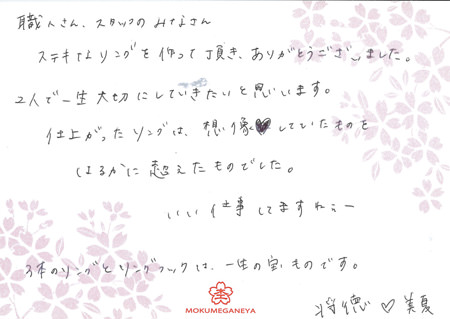 職人さん、スタッフのみなさん
ステキなリングを作って頂き、ありがとうございました。
2人で一生大切にしていきたいと思います。
仕上がったリングは、想像していたものを
はるかに超えたものでした。
いい仕事してますねぇー
3本のリングとリングフックは、一生の宝ものです。
将徳♡美夏
MOKUMEGANEYA